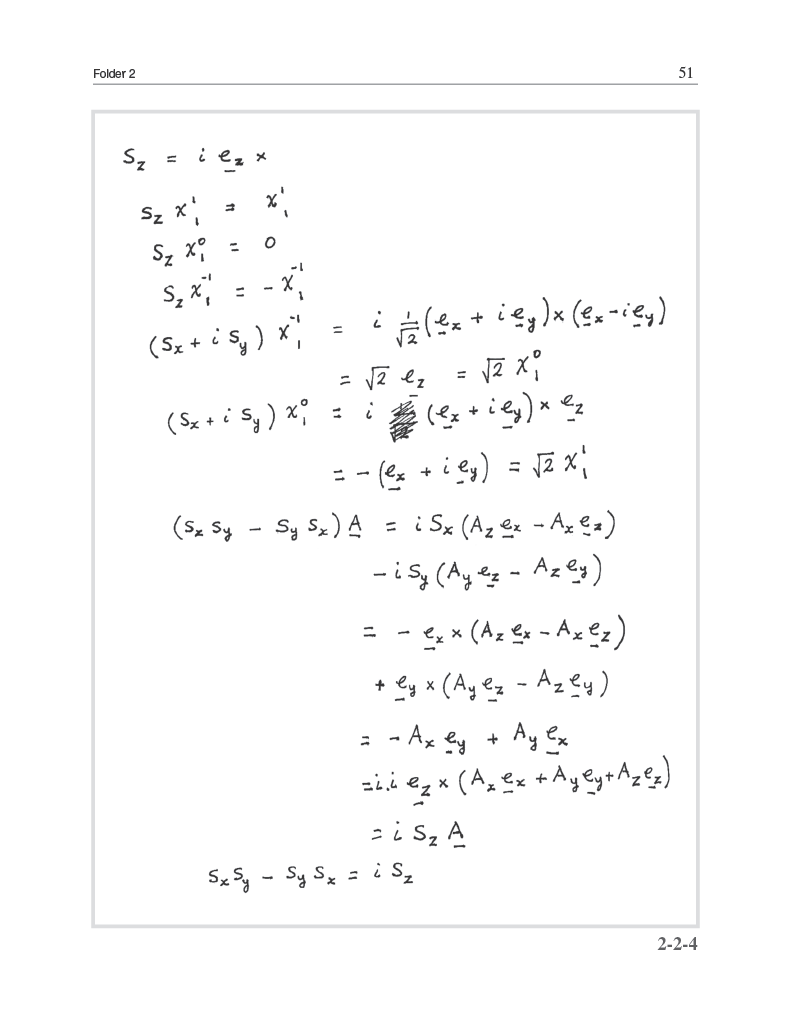 Folder 2 51
S_z = i e_z ×
S_z χ_1^1 = χ_1^1
S_z χ_1^0 = 0
S_z χ_1^{-1} = - χ_1^{-1}
(S_x + i S_y) χ_1^{-1} = i 1/√2 (e_x + i e_y) × (e_x - i e_y)
= √2 e_z = √2 χ_1^0
(S_x + i S_y) χ_1^0 = i (e_x + i e_y) × e_z
= - (e_x + i e_y) = √2 χ_1^1
(S_x S_y - S_y S_x) A = i S_x (A_z e_x - A_x e_z)
- i S_y (A_y e_z - A_z e_y)
= - e_x × (A_z e_x - A_x e_z)
+ e_y × (A_y e_z - A_z e_y)
= - A_x e_y + A_y e_x
= i.i e_z × (A_x e_x + A_y e_y + A_z e_z)
= i S_z A
S_x S_y - S_y S_x = i S_z
2-2-4